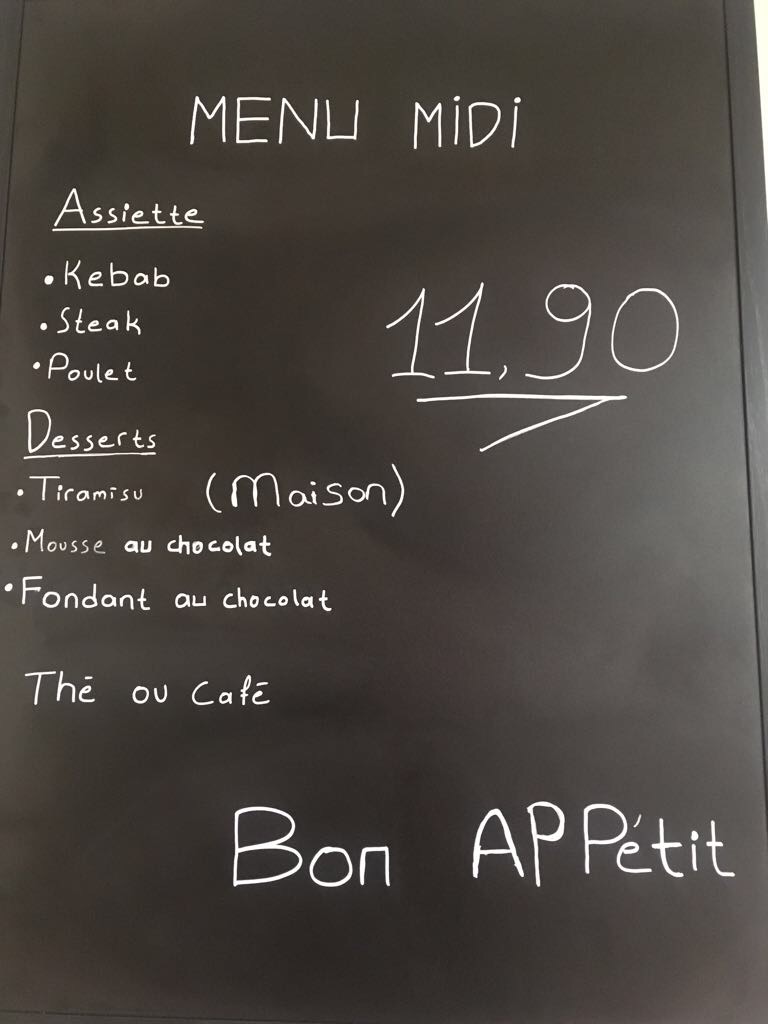 MENU MiDi
Assiette
• Kebab
• Steak
• Poulet
11,90
Desserts
• Tiramisu (Maison)
• Mousse au chocolat
• Fondant au chocolat
Thé ou Café
Bon APPétit